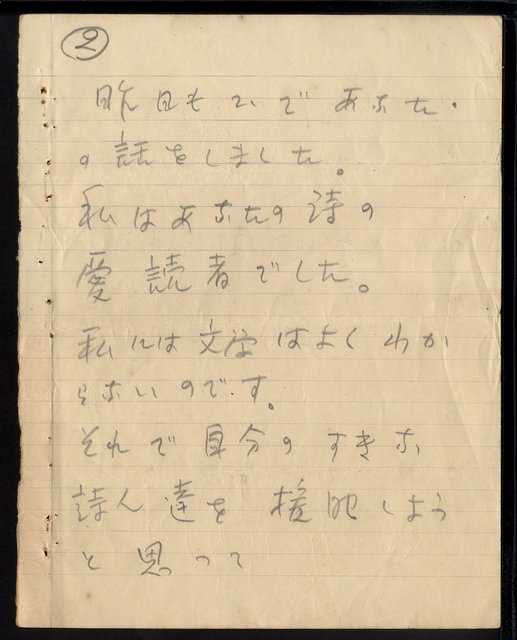 ②
昨日もコゝであなた
の話をしました。
私はあなたの詩の
愛読者でした。
私には文学はよくわか
らないのです。
それで自分のすきな
詩人達を援助しよう
と思って